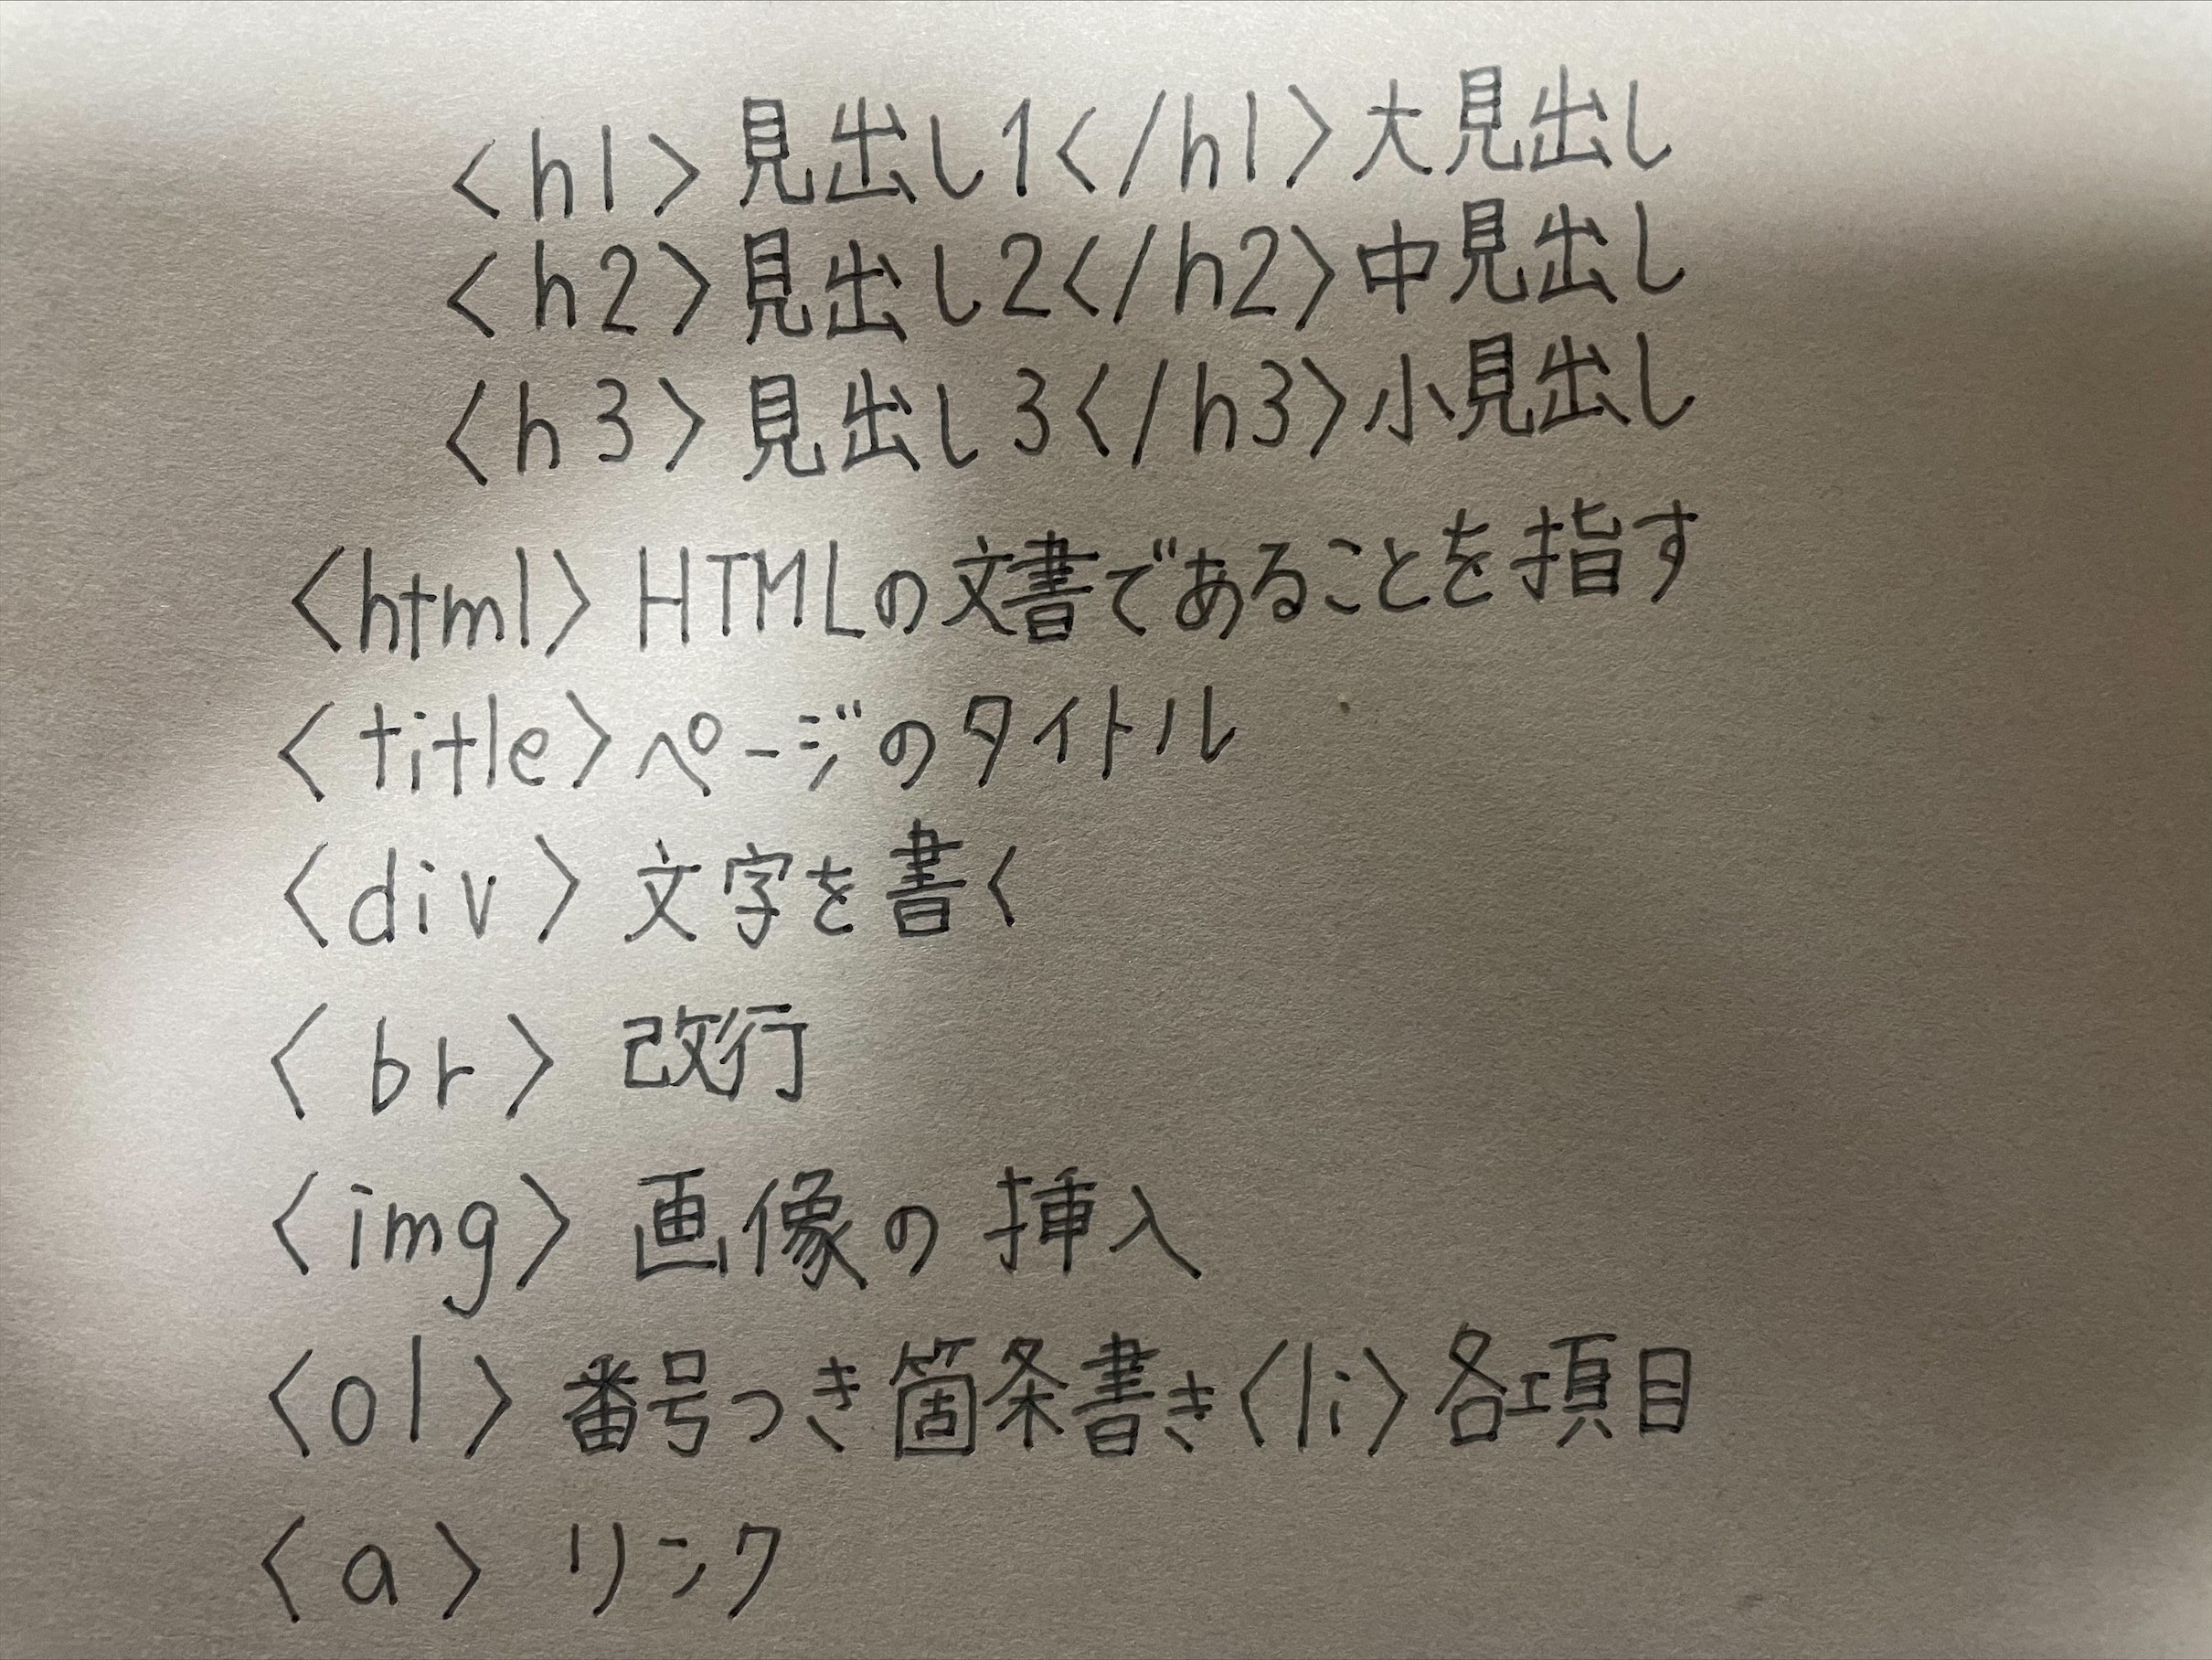 <h1>見出し1</h1>大見出し
<h2>見出し2</h2>中見出し
<h3>見出し3</h3>小見出し
<html>HTMLの文書であることを指す
<title>ページのタイトル
<div>文字を書く
<br>改行
<img>画像の挿入
<ol>番号つき箇条書き<li>各項目
<a>リンク